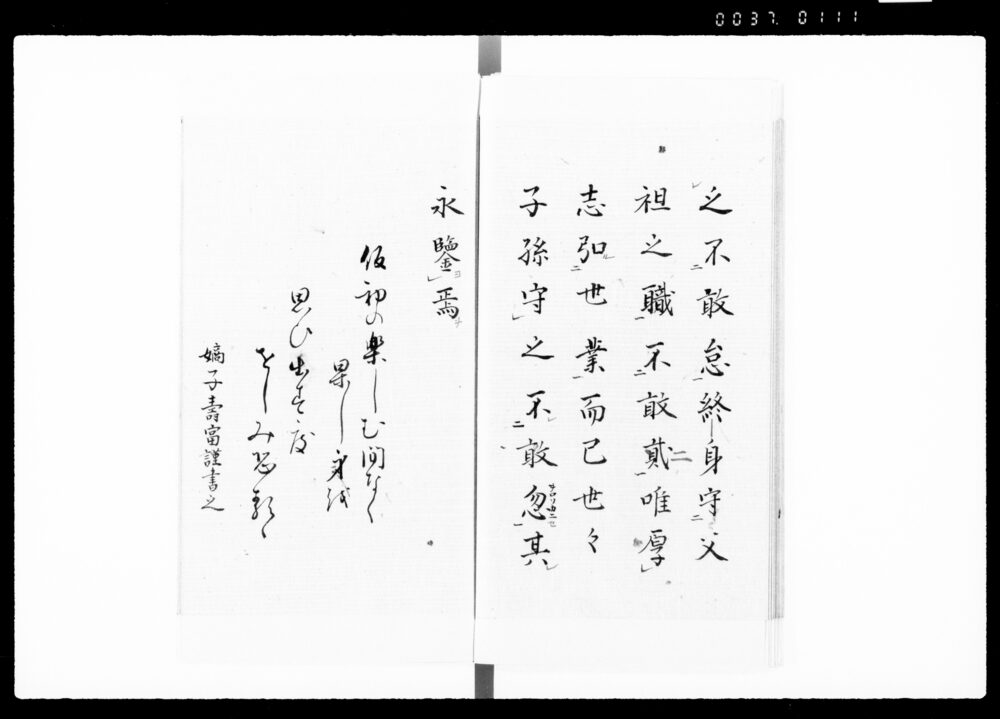 0037. 0111
之不敢怠終身守父
祖之職不敢貳唯厚
志弘世業而已世々
子孫守之不敢忽其
永鑒焉
仮初の楽しむ間なく
果し身の
思ひ出す
をしみ
嫡子壽富謹書之